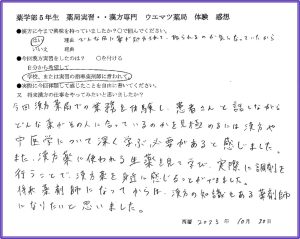 薬学部5年生 薬局実習・・漢方専門 ウエマツ薬局 体験 感想
●漢方に今まで興味を持っていましたか?○で囲んでください。
はい 理由 どんな
いいえ 理由
●今回漢方実習したのは? ○を付ける
自分から希望し
学校、または実習の指導薬剤師に言われて
●実際に今回体験して感じたことを自由に書いてください。
又 将来漢方の仕事をやってみたいと思いましたか?
今回漢方薬局での業務を体験し、患者さんと話しながら
どんな薬がその人に合っているのかを見極めるには漢方や
中医学について深く学ぶ必要があると感じました。
また、漢方薬に使われる生薬を見て学び、実際に調剤を
行うことで、漢方薬を身近に感じることができました。
将来薬剤師になってからは、漢方の知識もある薬剤師
になりたいと思いました。
西暦 2023 年 10月 20日